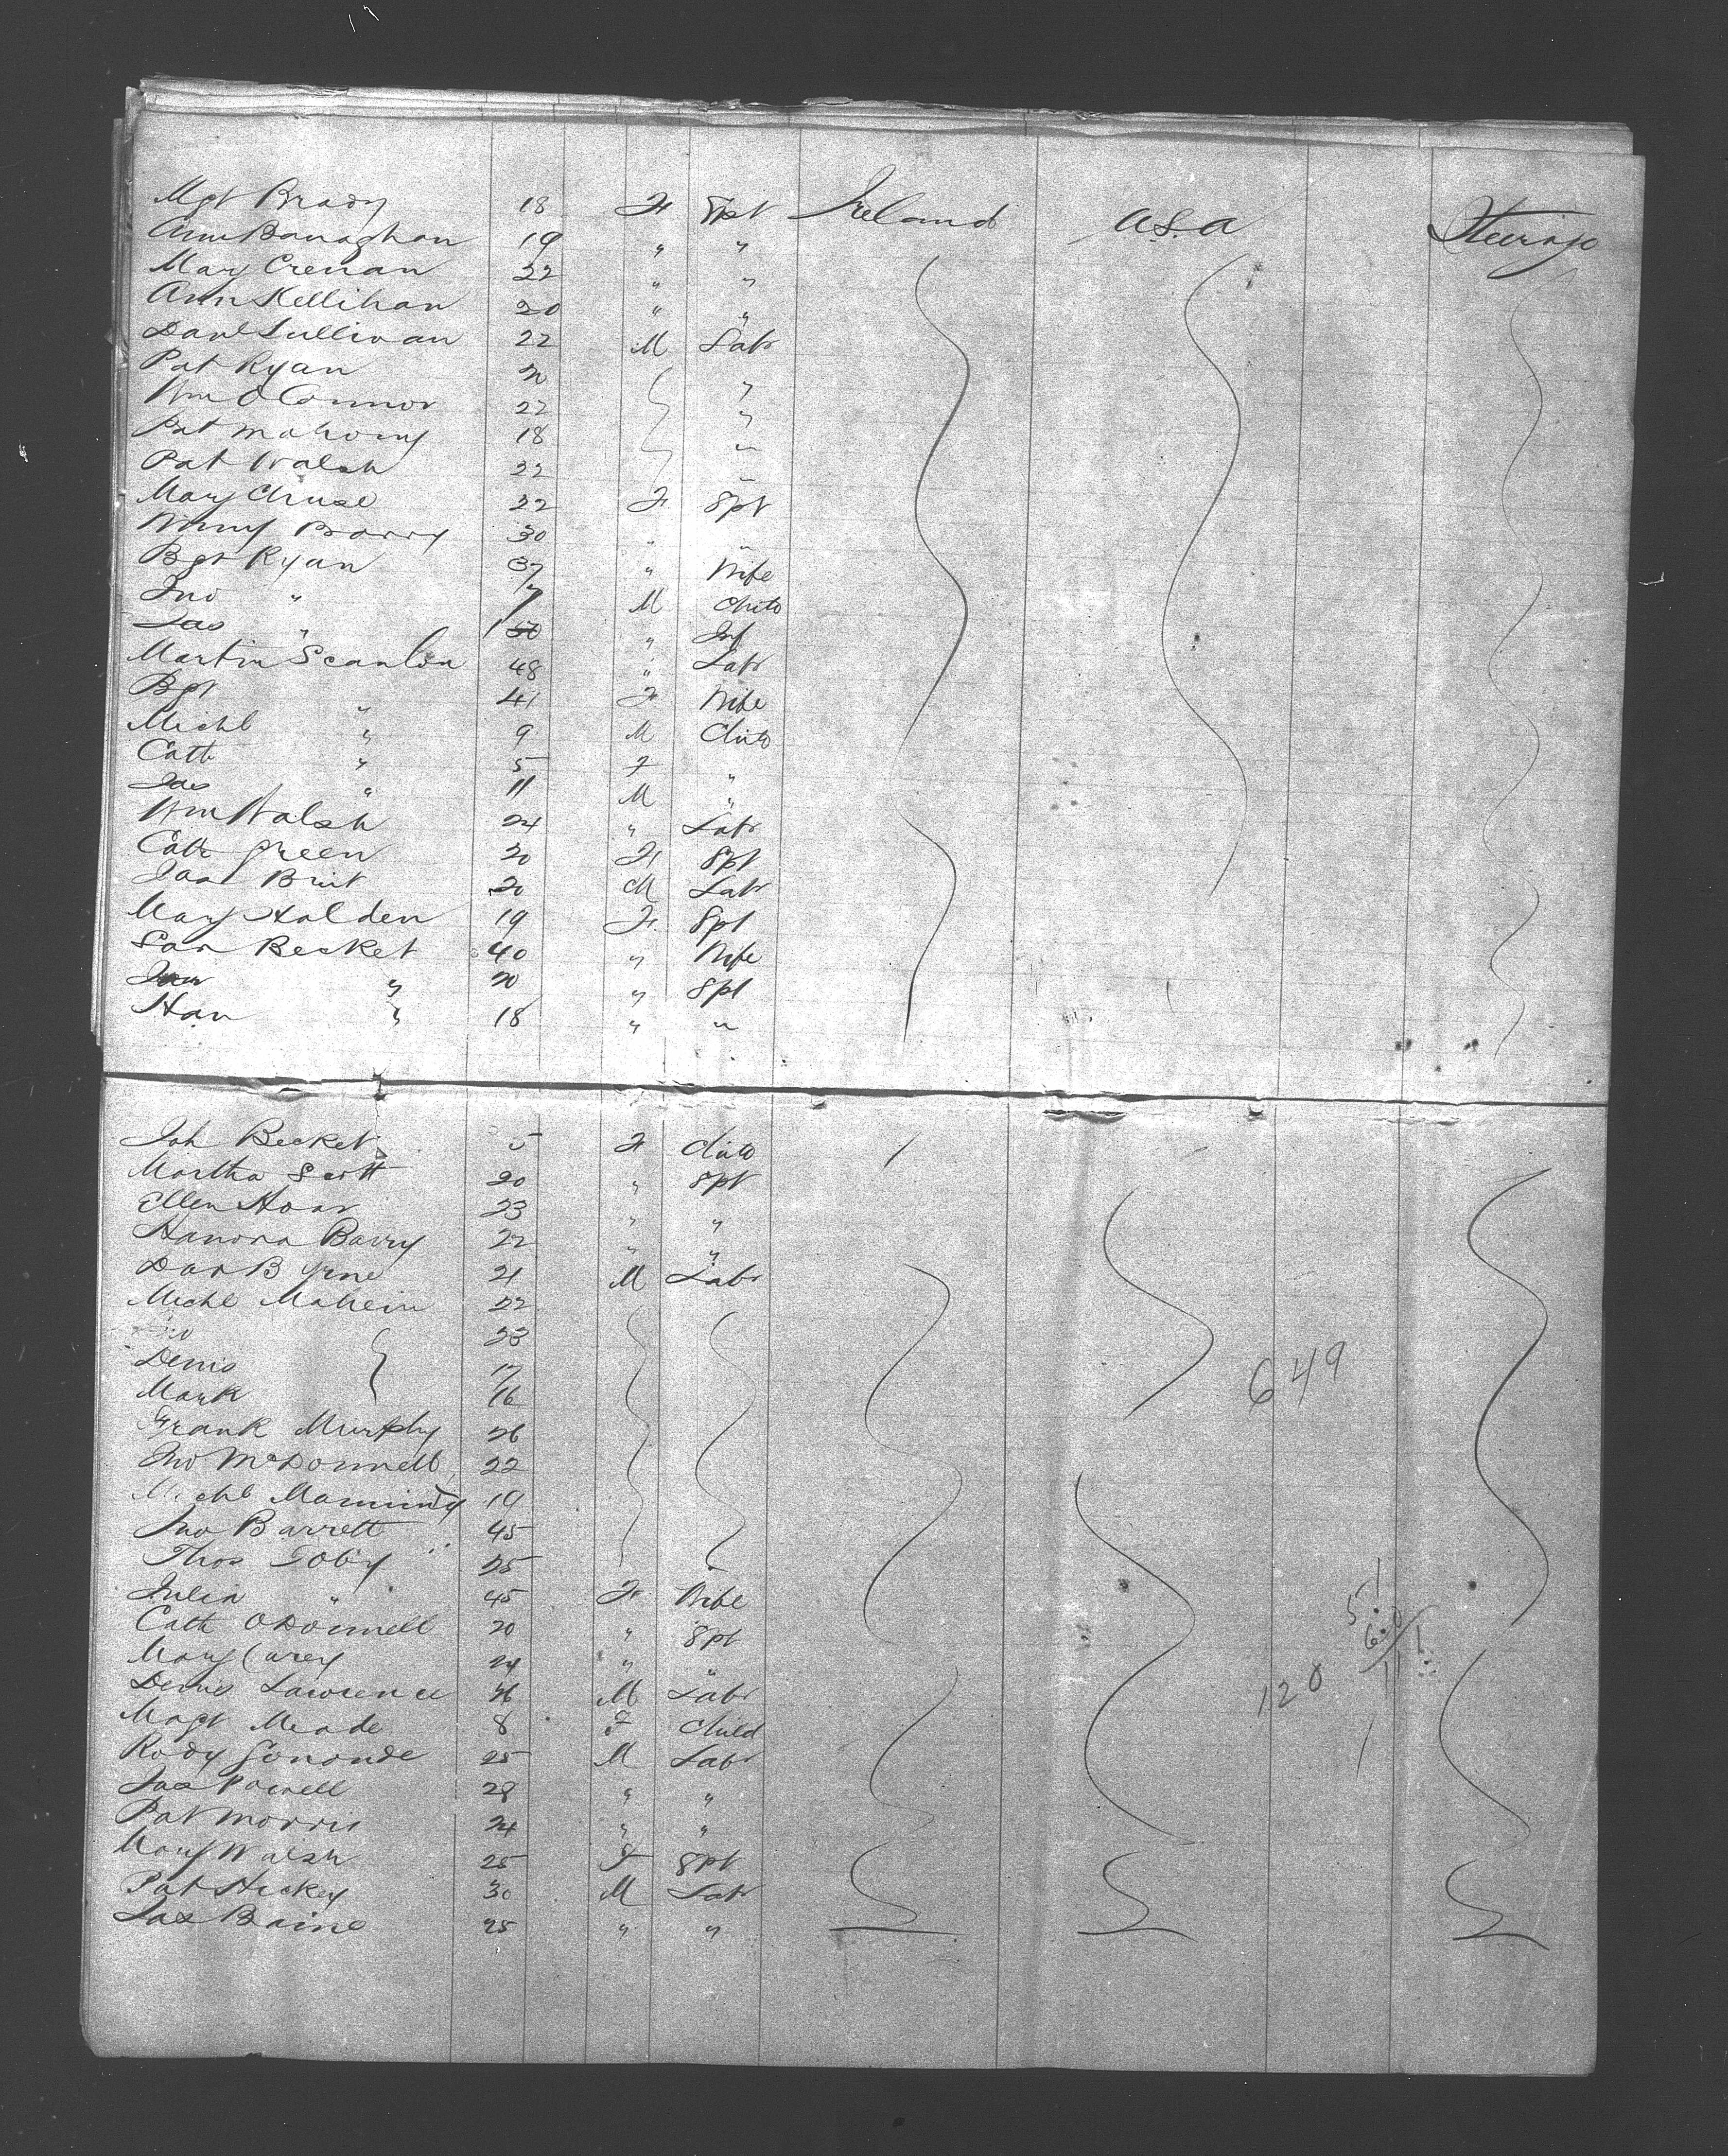 Mgt Brady 18 F Spt Ireland U.S.A Steerage
Ann Banaghan 19 " "
Mary Crenan 22 " "
Ann Kellihan 20 " "
Danl Sullivan 22 M Labr
Pat Ryan 20 "
Wm O Connor 22 "
Pat Mahony 18 "
Pat Walsh 22 "
Mary Cruse 22 F Spt
Winny Barry 30 " "
Bgt Ryan 37 " Wife
Jno " 7 M Child
Jas " " Inf
Martin Scanlon 48 " Labr
Bgt " 41 F Wife
Michl " 9 M Child
Cath " 5 F "
Jas " 11 M "
Wm Walsh 24 " Labr
Cath Green 20 F Spt
Brit 20 M Labr
Mary Holden 19 F Spt
Sar Becket 40 " Wife
" 20 " Spt
Han " 18 " "
Joh Becket 5 F Child
Martha Scott 20 " Spt
Ellen Hoar 23 " "
Hanora Barry 22 " "
Dan Byrne 21 M Labr
Michl Mahein 22
Jno 23
Denis 17
Mark 16
Frank Murphy 26
Jno McDonnell 22
Michl Manning 19
Jno Barrett 45
Thos Toby 25
Julia " 45 F Wife
Cath O'Donnell 20 " Spt
Mary Carey 24 " "
Denis Lawrence 26 M Labr
Magt Meade 8 F Child
Rody 25 M Labr
Jas Powell 28 " "
Pat Morris 24 " "
Mary Walsh 25 F Spt
Pat Hickey 30 M Labr
Jas Baine 25 " "
649
51
60
111
120